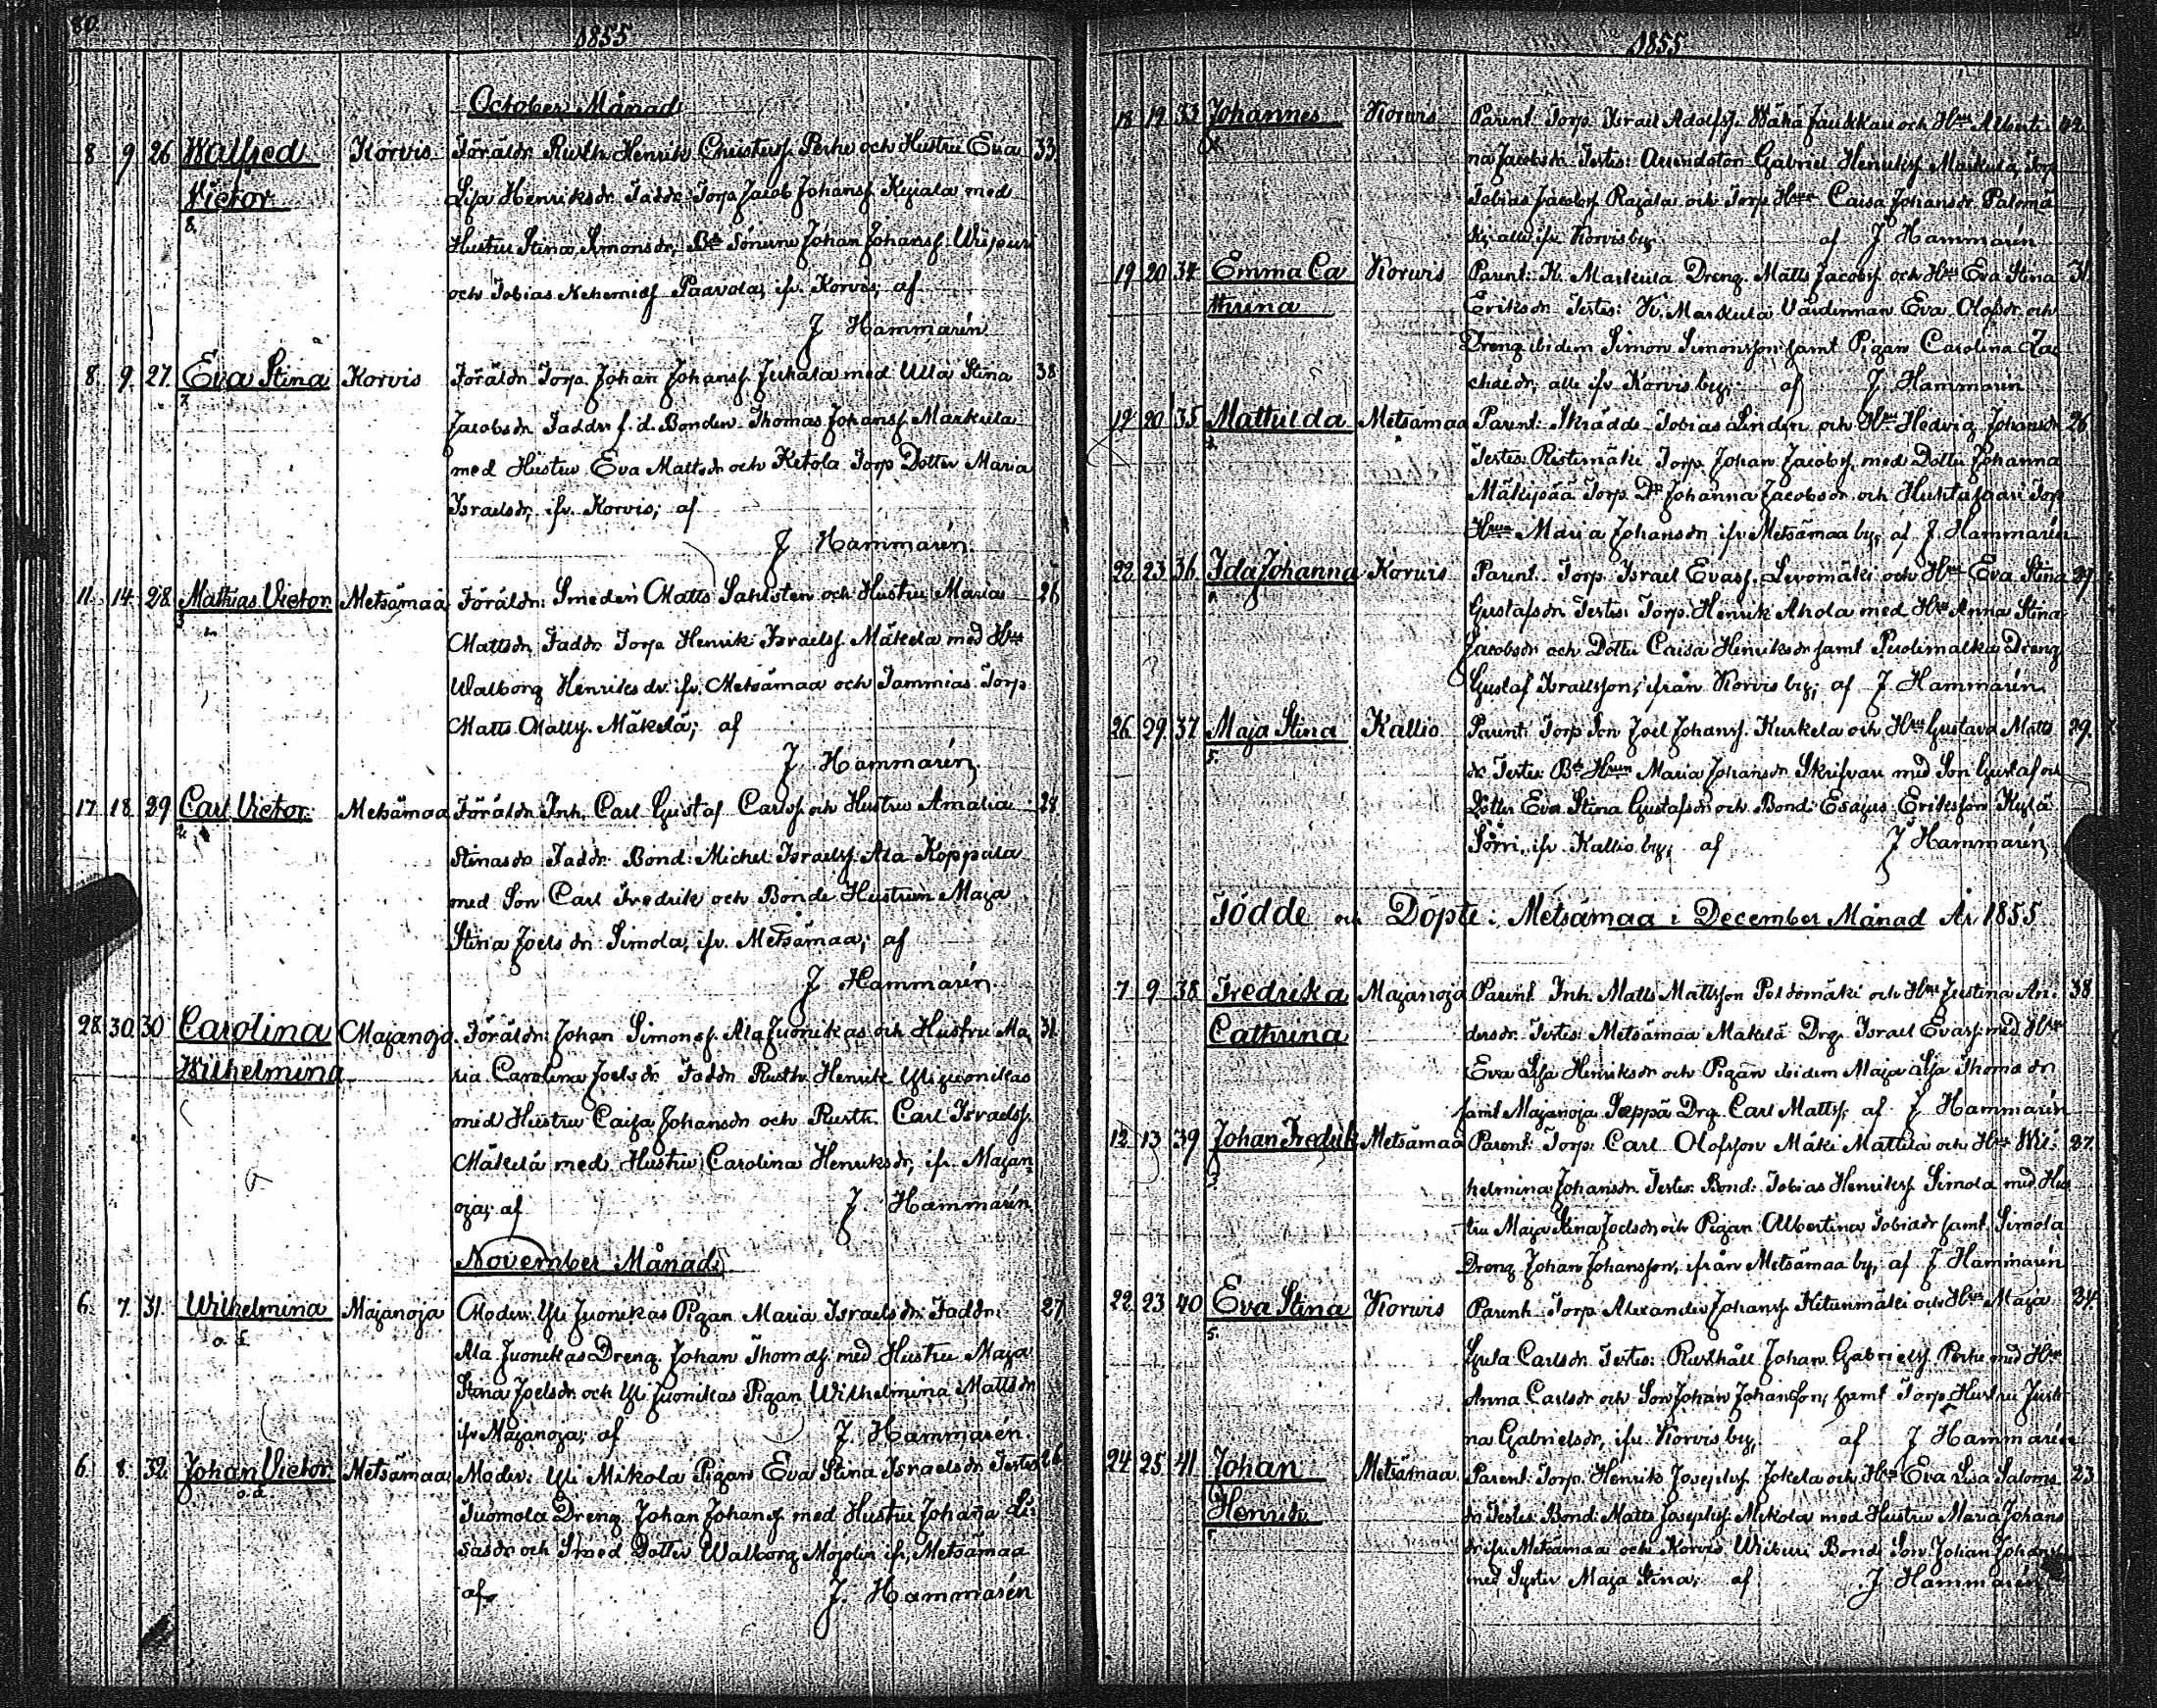 80.
1855
October Månad
8 9 26 Walfred Korvis Föräldr. Rusth. Henrik Christersf. Perhe och Hustru Eva 33.
Victor Lisa Henriksdr. Faddr. Torp. Jacob Johansf. Kujala med
8. Hustru Stina Simonsdr, Bde Sönerne Johan Johansf. Wiipuri
och Tobias Nehemiasf Paavola, ifr. Korvis; af
J Hammarén
8. 9. 27. Eva Stina Korvis Föräldr. Torp. Johan Johansf. Juhala med Ulla Stina 38
7. Jacobsdr. Faddr. f. d. Bonden Thomas Johansf. Markula
med Hustru Eva Mattsdr och Ketola Torp Dotter Maria
Israelsdr, ifr. Korvis; af
J Hammarén.
11. 14. 28. Mathias Victor Metsämaa Föräldr: Smeden Matts Sahlsten och Hustru Maria 26
3 Mattsdr. Faddr. Torp. Henrik Israelsf. Mäkelä med Hru
Walborg Henriksdr. ifr. Metsämaa och Tammias Torp
Matts Mattsf. Mäkelä; af
J. Hammarén.
17 18. 29 Carl Victor. Metsämaa Föräldr. Inh. Carl Gustaf Carlsf. och Hustru Amalia 28.
2. Stinasdr. Faddr. Bond: Michel Israelsf. Ala Koppala
med Son Carl Fredrik och Bonde Hustrun Maja
Stina Joelsdr. Simola, ifr. Metsämaa; af
J Hammarén.
28. 30. 30 Carolina Majanoja. Föräldr: Johan Simonsf. Ala Juonikas och Hustru Ma 31.
Wilhelmina ria Carolina Joelsdr. Faddr. Rusth. Henrik Yli Juonikas
med Hustru Caisa Johansdr och Rusth. Carl Israelsf.
Mäkelä med Hustru Carolina Henriksdr, ifr. Majan
oja; af J. Hammarén
November Månad
6. 7. 31. Wilhelmina Majanoja Moder: Yli Juonikas Pigan Maria Israelsdr. Faddr: 27.
o. ä. Ala Juonikas Dreng Johan Thomasf. med Hustru Maja
Stina Joelsdr och Yli Juonikas Pigan Wilhelmina Mattsdr
ifr Majanoja; af J. Hammarén.
6. 8. 32. Johan Victor Metsämaa Moder: Yli Mikola Pigan Eva Stina Israelsdr Testes 26
o. ä Tuomola Dreng Johan Johansf med Hustru Johana Li-
sasdr och Smed Dotter Walborg Mojolin ifr, Metsämaa
af J. Hammarén
1855
18 19 33 Johannes Korvis Parent. Torp. Israel Adolfsf. Wähä Jaukkari och Hru Alberti- 42
na Jacobsdr Testes: Arendaton Gabriel Henriksf Markula, Torp
Tobias Jacobsf Rajala och Torp Hrue Caisa Johansdr. Palomä
ki alle ifr Korvis by; af J Hammarén
19 20 34. Emma Ca Korvis Parent: K. Markula Dreng Matts Jacobsf. och Hru Eva Stina 31.
thrina Eriksdr Testes: K. Markula Värdinnan Eva Olofsdr, och
Dreng ibidem Simon Simonsson samt Pigan Carolina Zac
chæidr, alle ifr Korvis by; af J Hammarén
19 20 35 Mathilda Metsämaa Parent: Skrädd. Tobias Lindén och Hru Hedvig Johansdr 26
2. Testes: Ristimäki Torp. Johan Jacobsf, med Dotter Johanna
Mäkipää Torp Dr Johanna Jacobsdr och Huhtasaari Torp
Hrun Maria Johansdr ifr Metsämaa by, af J. Hammarén
22. 23. 36. Ida Johanna Korvis Parent. Torp. Israel Evasf. Levomäki och Hru Eva Stina 27.
Gustafsdr Testes: Torp. Henrik Ahola med Hru Anna Stina
Jacobsdr och Dotter Caisa Henriksdr samt Puolimatka Dreng
Gustaf Israelsson; ifrån Korvis by; af J Hammarén
26. 29. 37. Maja Stina Kallio Parent: Torp Son Joel Johansf. Kurkela och Hru Gustava Matts 29.
5. dr. Testes: Bde Hrun Maria Johansdr Skrifvari med Son Gustaf och
Dotter Eva Stina Gustafsdr och Bond: Esajas Eriksson Kylä
Sörri, ifr Kallio by; af J Hammarén
Födde och Döpte i Metsämaa i December Månad År 1855
7 9 38 Fredrika Majanoja Parent. Inh. Matts Mattsson Poldomäki och Hru Justina An- 38
Cathrina dersdr. Testes: Metsämaa Mäkelä Drg. Israel Evasf. med Hru
Eva Lisa Henriksdr och Pigan ibidem Maja Lisa Thomasdr
samt Majanoja Seppä Drg. Carl Mattsf; af J Hammarén
12 13 39 Johan Fredrik Metsämaa Parent: Torp. Carl Olofsson Mäki Mattila och Hru Wil- 27.
3. helmina Johansdr. Testes: Bond: Tobias Henriksf Simola med Hus
tru Maja Stina Joelsdr och Pigan Albertina Tobiasdr samt Simola
Dreng Johan Johansson, ifrån Metsämaa by, af J Hammarén
22. 23 40 Eva Stina Korvis Parent. Torp Alexander Johansf Ketunmäki och Hru Maja 34.
5. Greta Carlsdr Testes: Rusthåll Johan Gabrielsf Perhe med Hru
Anna Carlsdr och Son Johan Johansson, samt Torp. Hustru Justi-
na Gabrielsdr, ifr. Korvis by; af J Hammarén
24 25 41 Johan Metsämaa Parent. Torp. Henrik Josephsf. Jokela och Hru Eva Lisa Saloms 23.
Henrik dr Testes: Bond: Matts Josephsf. Mikola med Hustru Maria Johans
dr ifr. Metsämaa och Korvis Wiburi Bonde Son Johan Johansf
med Syster Maja Stina; af J Hammarén